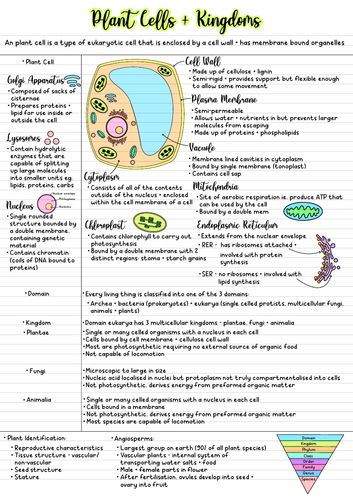 Plant Cells + Kingdoms
An plant cell is a type of eukaryotic cell that is enclosed by a cell wall + has membrane bound organelles
• Plant Cell
Golgi Apparatus
• Composed of sacks of cisternae
• Prepares proteins + lipid for use inside or outside the cell
Lysosomes
• Contain hydrolytic enzymes that are capable of splitting up large molecules into smaller units eg. lipids, proteins, carbs
Nucleus
• Single rounded structure bounded by a double membrane, containing genetic material
• Contains chromatin (coils of DNA bound to proteins)
Cell Wall
• Made up of cellulose + lignin
• Semi-rigid + provides support but flexible enough to allow some movement
Plasma Membrane
• Semi-permeable
• Allows water + nutrients in but prevents larger molecules from escaping
• Made up of proteins + phospholipids
Vacuole
• Membrane lined cavities in cytoplasm
• Bound by single membrane (tonoplast)
• Contains cell sap
Cytoplasm
• Consists of all of the contents outside of the nucleus + enclosed within the cell membrane of a cell
Mitochondria
• Site of aerobic respiration ie. produce ATP that can be used by the cell
• Bound by a double mem
Chloroplast
• Contains chlorophyll to carry out photosynthesis
• Bound by a double membrane with 2 distinct regions: stoma + starch grains
Endoplasmic Reticulum
• Extends from the nuclear envelope
• RER - has ribosomes attached + involved with protein synthesis
• SER - no ribosomes + involved with lipid synthesis
• Domain
• Every living thing is classified into one of the 3 domains:
• Archea + bacteria (prokaryotes) + eukarya (single celled protists, multicellular fungi, animals + plants)
• Kingdom
• Domain eukarya has 3 multicellular kingdoms - plantae, fungi + animalia
• Plantae
• Single or many celled organisms with a nucleus in each cell
• Cells bound by cell membrane + cellulose cell wall
• Most are photosynthetic requiring no external source of organic food
• Not capable of locomotion
• Fungi
• Microscopic to large in size
• Nucleic acid localised in nuclei but protoplasm not truly compartmentalised into cells
• Not photosynthetic, derives energy from preformed organic matter
• Animalia
• Single or many celled organisms with a nucleus in each cell
• Cells bound in a membrane
• Not photosynthetic, derives energy from preformed organic matter
• Most species are capable of locomotion
• Plant Identification:
• Reproductive characteristics
• Tissue structure - vascular/non-vascular
• Seed structure
• Stature
• Angiosperms:
• Largest group on earth (90% of all plant species)
• Vascular plants - internal system of transporting water + food
• Male + female parts in flower
• After fertilisation, ovules develop into seed + ovary into fruit
Domain
Kingdom
Phylum
Class
Order
Family
Genus
Species